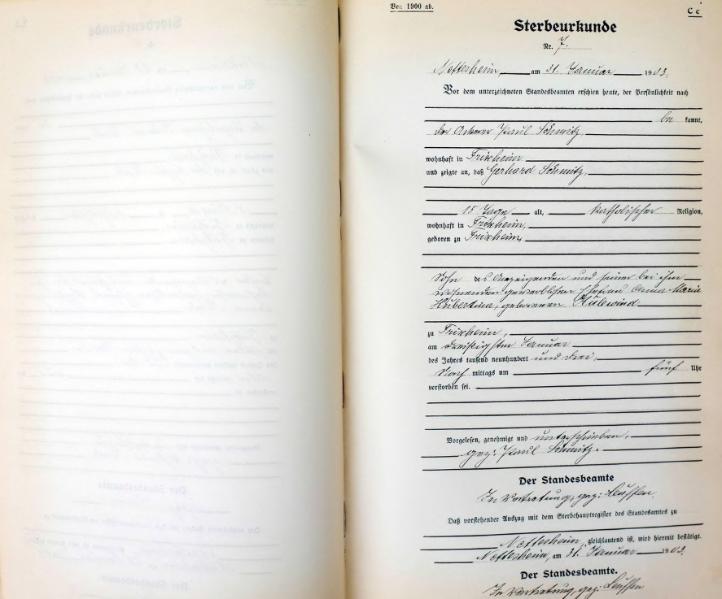 Von 1900 ab.
C c
Sterbeurkunde
Nr. 7.
Nettersheim, am 31. Januar 1903.
Vor dem unterzeichneten Standesbeamten erschien heute, der Persönlichkeit nach
be kannt,
der Ackerer Paul Schmitz
wohnhaft in Frixheim
und zeigte an, daß Gerhard Schmitz,
15 Tage alt, katholischer Religion,
wohnhaft in Frixheim,
geboren zu Frixheim,
Sohn des Anzeigenden und seiner bei ihm
wohnenden Ehefrau Anna Maria
Hubertina, geborenen
zu Frixheim,
am dreißigsten Januar
des Jahres tausend neunhundert und drei,
Nach mittags um fünf Uhr
verstorben sei.
Vorgelesen, genehmigt und unterschrieben.
gez: Paul Schmitz.
Der Standesbeamte
In Vertretung, gez:
Daß vorstehender Auszug mit dem Sterbehauptregister des Standesamtes zu
gleichlautend ist, wird hiermit bestätigt.
am 31. Januar 1903.
Der Standesbeamte.
In Vertretung, gez: